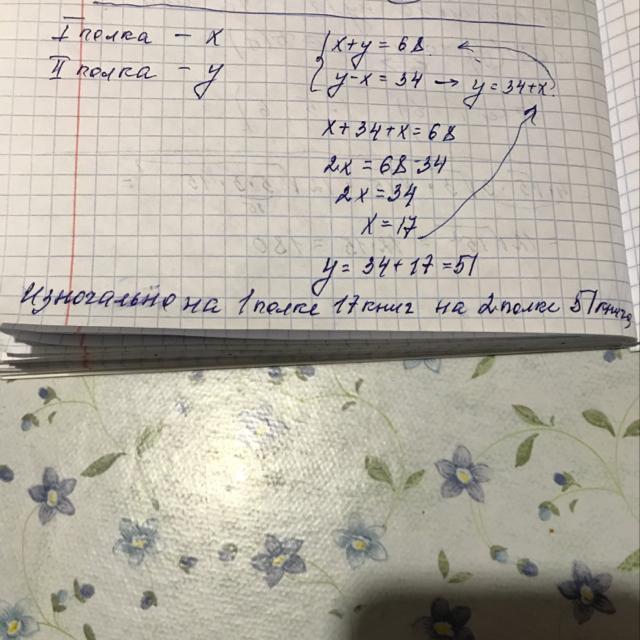 I полка – x
II полка – y
{ x+y=68
y–x=34 → y=34+x
x+34+x=68
2x=68-34
2x=34
x=17
y=34+17=51
Изночально на 1 полке 17 книг на 2 полке 51 книга